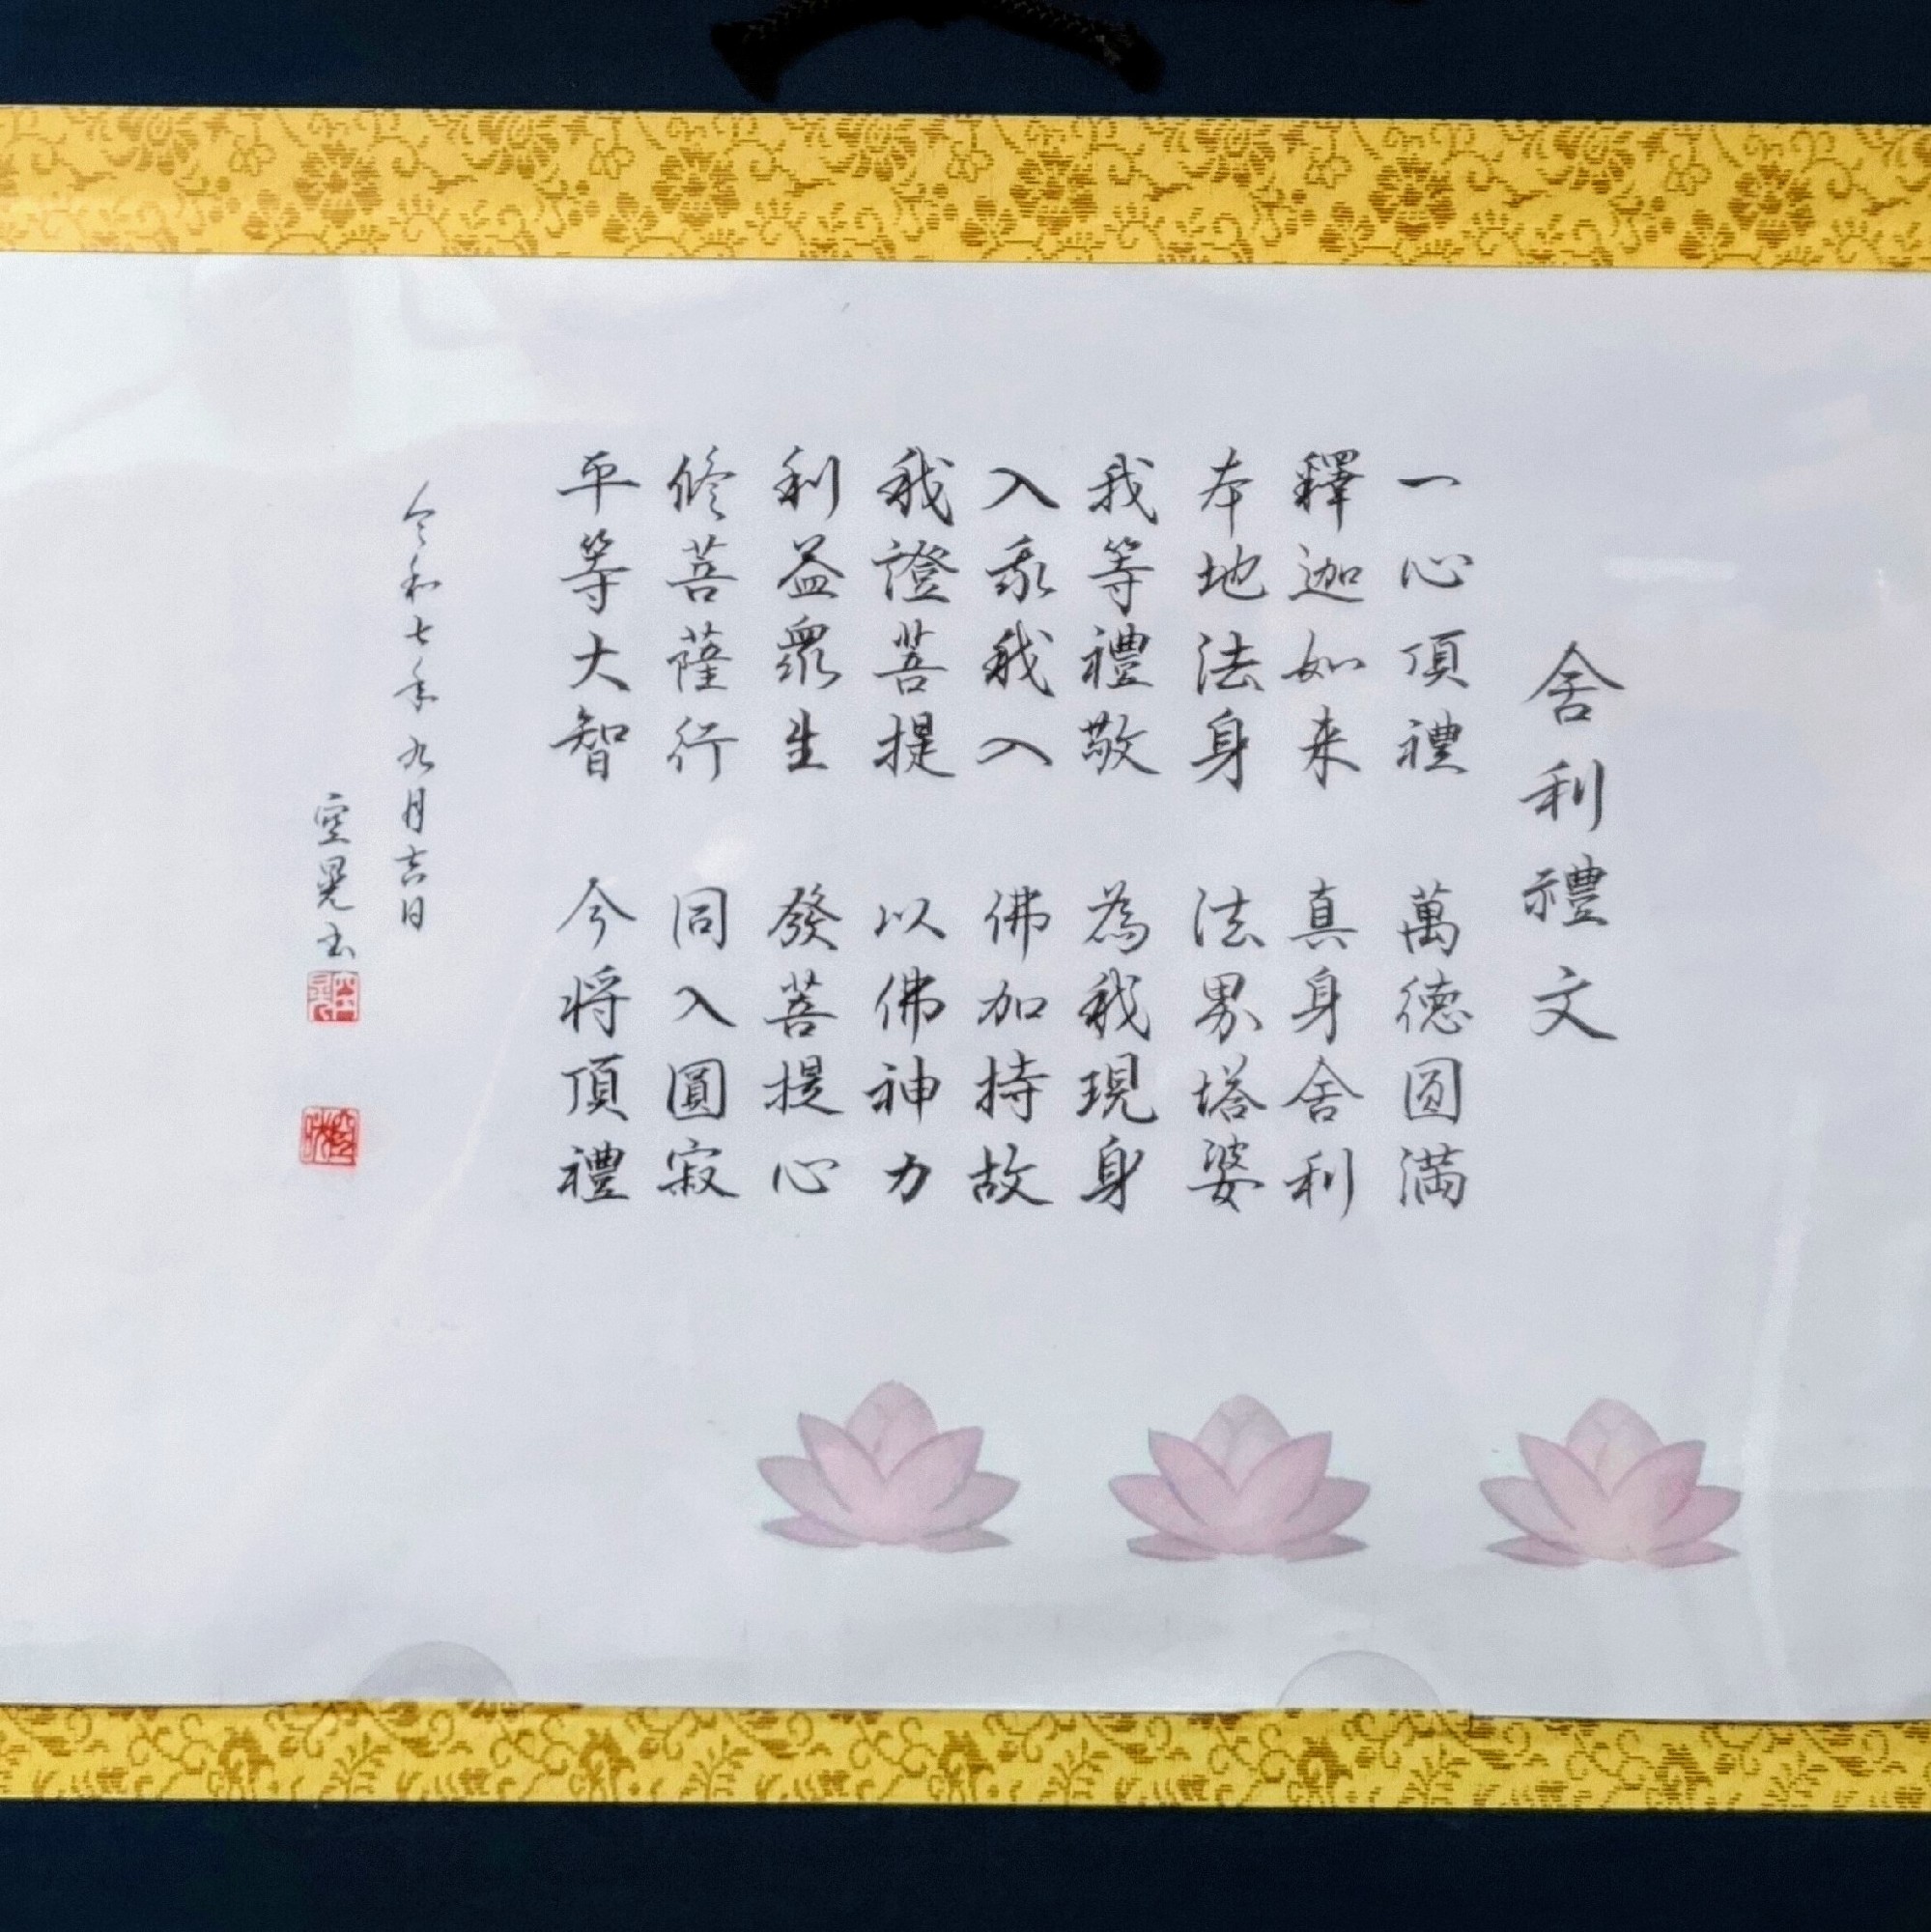 舎利禮文
一心頂禮 萬徳圆満
釋迦如来 真身舎利
本地法身 法界塔婆
我等禮敬 為我現身
入我我入 佛加持故
我證菩提 以佛神力
利益衆生 發菩提心
修菩薩行 同入圓寂
平等大智 今将頂禮
令和七年九月吉日
空晃書